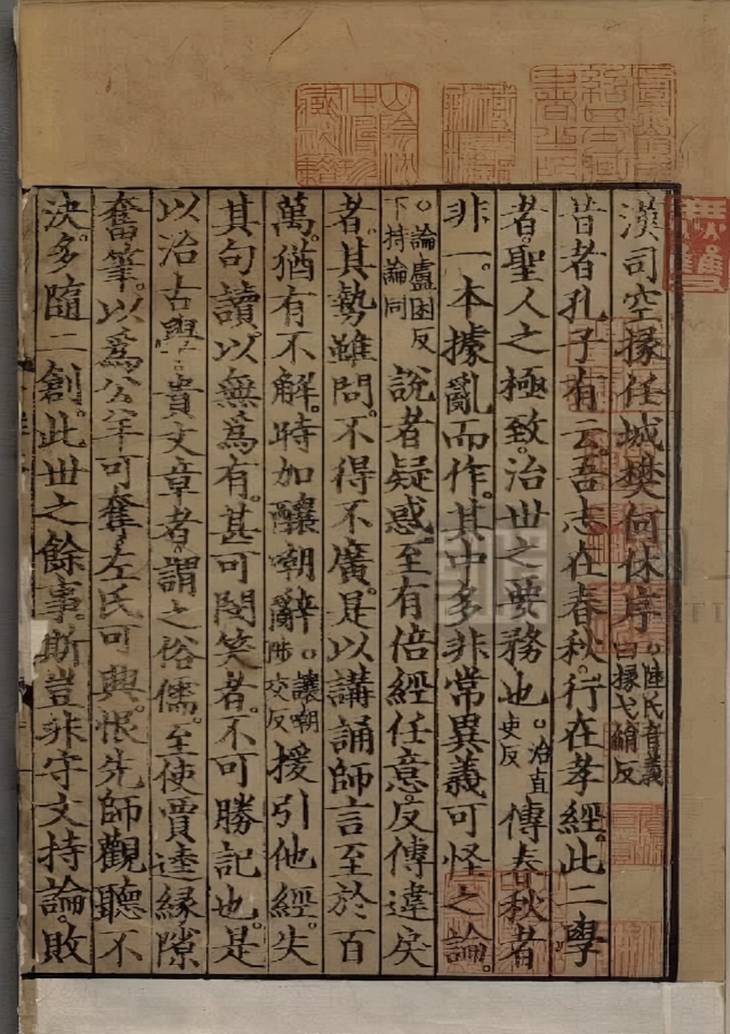 漢司空掾任城樊何休序○陸氏音義曰掾弋絹反
昔者孔子有云吾志在春秋行在孝經此二學
者聖人之極致治世之要務也○治直吏反傳春秋者
非一本據亂而作其中多非常異義可怪之論
○論盧困反下持論同說者疑惑至有倍經任意反傳違戾
者其勢雖問不得不廣是以講誦師言至於百
萬猶有不解時加釀嘲辭○讓嘲陟交反援引他經失
其句讀以無爲有甚可閔笑者不可勝記也是
以治古學貴文章者謂之俗儒至使賈逵緣隙
奮筆以爲公羊可奪左氏可興恨先師觀聽不
決多隨二創此世之餘事斯豈非守文持論敗